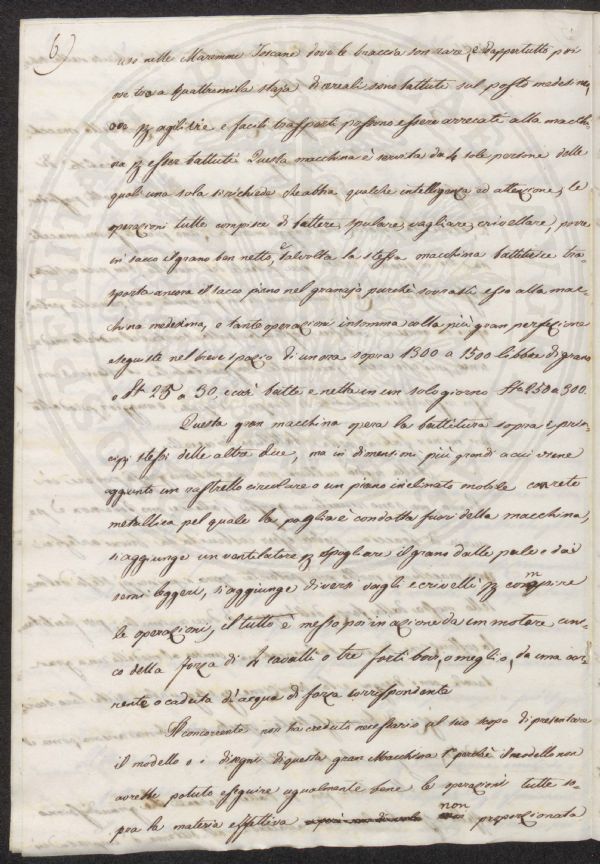 6)
uso nelle Maremme Toscane dove le braccia son rare, e dappertutto poi
ove tre a quattremila staja di cereali sono battute sul posto medesimo,
ove p agilità e facili trasporti possono essere arrecati alla macchi-
na p esser battuti. Questa macchina è servita da 4 sole persone delle
quali una sola si richiede che abbia qualche intelligenza ed attenzione; le
operazioni tutte compisce di battere, spulare, vagliare, crivellare, porre
in sacco il grano ben netto, e talvolta la stessa macchina battitrice tra-
sporta ancora il sacco pieno nel granajo purchè sovrasti esso alla mac-
china medesima, e tante operazioni insomma colla più gran perfezione
eseguite nel breve spazio di un'ora sopra 1300 a 1500 libbre di grano
o St 25 a 30, e così batte e netta in un solo giorno Sta 250 a 300.
Questa gran macchina opera la battitura sopra i prin-
cipj stessi delle altre due, ma in dimensioni più grandi a cui viene
aggiunto un rastrello circulare o un piano inclinato mobile con rete
metallica pel quale la paglia è condotta fuori della macchina,
si aggiunge un ventilatore p spogliare il grano dalle pule e dai
semi leggeri, si aggiunge diversi vagli e crivelli p compire
le operazioni, il tutto è messo poi in azione da un motore
della forza di 4 cavalli o tre forti bovi, o meglio, da una cor-
rente o caduta d'acqua di forza corrispondente
Il concorrente non ha creduto necessario al suo scopo di presentare
il modello o i disegni di questa gran Macchina 1° perchè il modello non
avrebbe potuto eseguire ugualmente bene le operazioni tutte so-
pra la materia effettiva non proporzionata